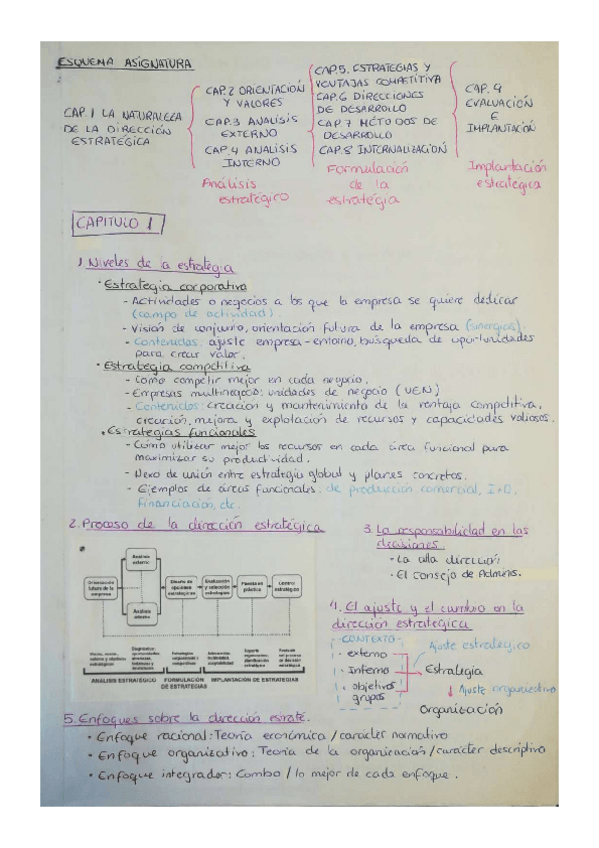 ESQUEMA ASIGNATURA
CAP. 1 LA NATURALEZA
DE LA DIRECCIÓN
ESTRATÉGICA
CAP. 2 ORIENTACIÓN
Y VALORES
CAP. 3 ANALISIS
EXTERNO
CAP. 4 ANALISIS
INTERNO
Análisis
estrategico
CAP. 5. ESTRATEGIAS Y
VENTAJAS COMPETITIVA
CAP. 6 DIRECCIONES
DE DESARROLLO
CAP. 7 METODOS DE
DESARROLLO
CAP. 8 INTERNALIZACIÓN
Formulación
de la
estrategia
CAP. 9
EVALUACIÓN
E
IMPLANTACIÓN
Implantación
estrategica
CAPITULO 1
1. Niveles de la estrategia
· Estrategia corporativa
- Actividades o negocios a los que la empresa se quiere dedicar
(campo de actividad).
- Visión de conjunto, orientación futura de la empresa (sinergias).
- Contenidos: ajuste empresa-entorno, búsqueda de oportunidades
para crear valor.
· Estrategia competitiva
- Cómo competir mejor en cada negocio.
- Empresas multinegocio: unidades de negocio (UEN)
- Contenidos: creación y mantenimiento de la ventaja competitiva,
creación, mejora y explotación de recursos y capacidades valiosos.
· Estrategias funcionales
- Cómo utilizar mejor los recursos en cada área funcional para
maximizar su productividad.
- Nexo de unión entre estrategia global y planes concretos.
- Ejemplos de áreas funcionales: de producción comercial, I+D,
financiación, etc.
2. Proceso de la dirección estratégica
Análisis
externo
Orientación
futura de la
empresa
Análisis
interno
Diseño de
opciones
estratégicas
Evaluación
y selección
estrategias
Puesta en
práctica
Control
estratégico
ANÁLISIS ESTRATÉGICO
FORMULACIÓN
DE ESTRATEGIAS
IMPLANTACIÓN DE ESTRATEGIAS
3. La responsabilidad en las
decisiones
- La alta dirección
- El consejo de Admins.
4. El ajuste y el cambio en la
dirección estrategica
CONTEXTO
· externo
· Interno
· objetivos
grupos
Ajuste estrategico
Estrategia
Ajuste organizativo
Organización
5. Enfoques sobre la dirección estraté.
· Enfoque racional: Teoría económica / carácter normativo
· Enfoque organizativo: Teoría de la organización / carácter descriptivo
· Enfoque integrador: Combo / lo mejor de cada enfoque.